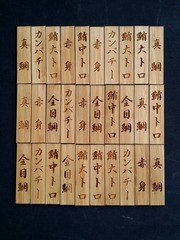 真鯛
鮪大トロ
鮪大トロ
カンパチー
鮪中トロ
赤身
鮪大トロ
カンパチー
真鯛
鮪中トロ
真鯛
金目鯛
鮪大トロ
金目鯛
赤身
カンパチー
金目鯛
赤身
真鯛
真鯛
赤身
カンパチー
鮪大トロ
鮪中トロ
鮪大トロ
金目鯛
カンパチー
金目鯛